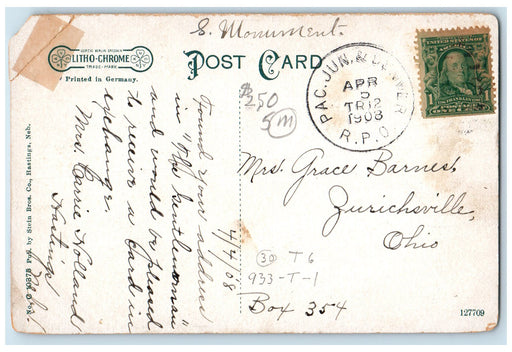 S. Monument.
LITHO-CHROME
TRADE-MARK
Printed in Germany.
POST CARD
PAC. JUN. & DENVER
APR
5
TR 12
1908
R.P.O.
UNITED STATES OF AMERICA
$
250
5 m
Found your address
in "The Gentlewoman"
and would be pleased
to receive a card in
exchange.
Mrs. Carrie Holland
Hastings
4/4/08
Mrs. Grace Barnest,
Zurichsville,
Ohio
30 T6
933-T-1
Box 354
Pub. by Stein Bros. Co., Hastings, Neb.
127709